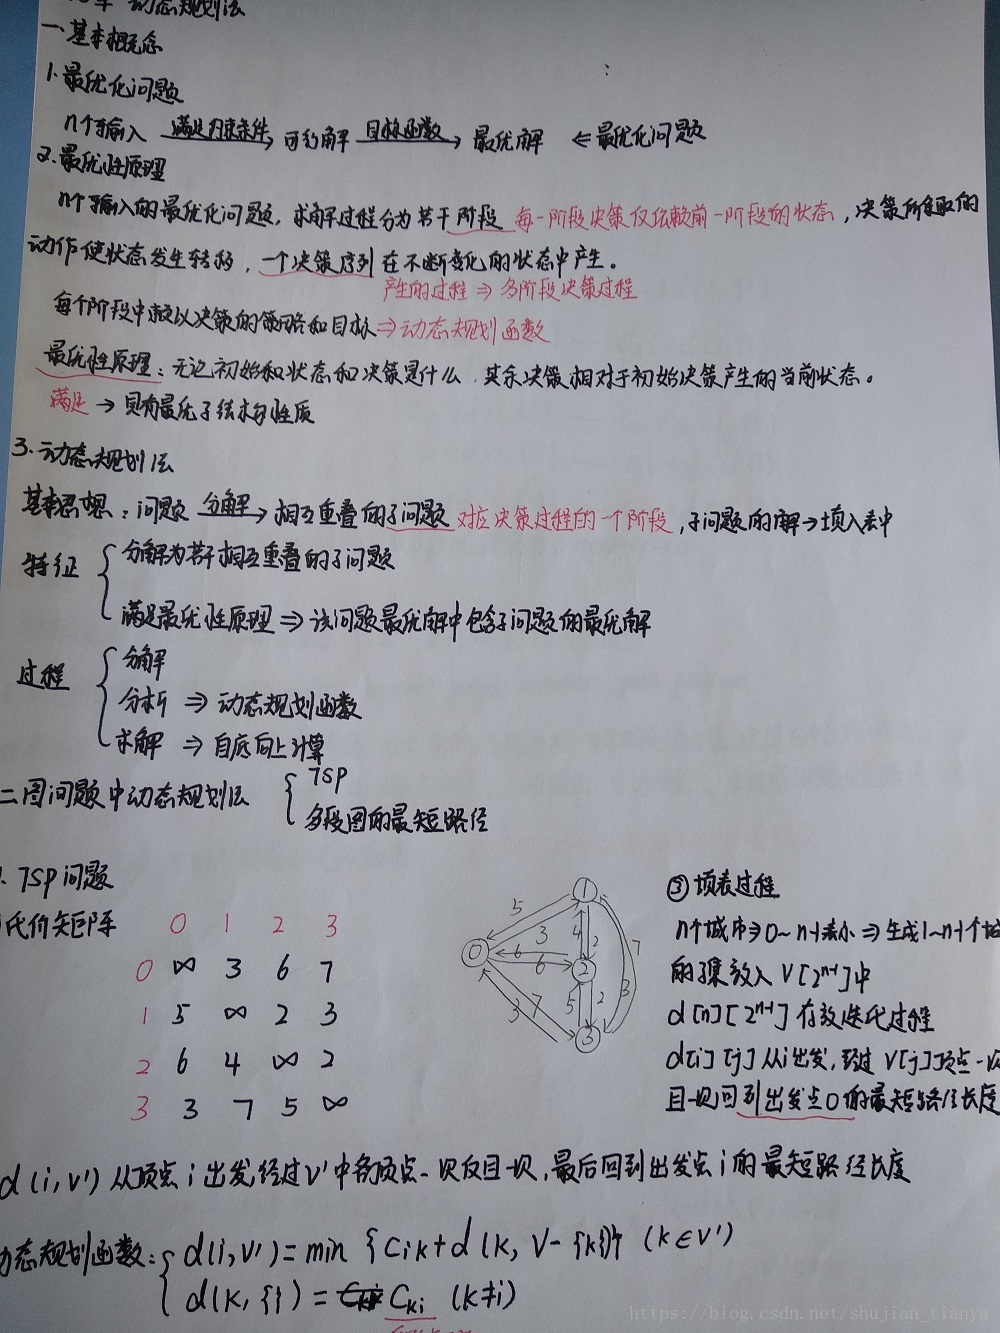 动态规划法
一.基本概念
1.最优化问题
n个输入 满足约束条件→ 可行解 目标函数→ 最优解 ⇐最优化问题
2.最优性原理
n个输入的最优化问题,求解过程分为若干阶段 每一阶段决策仅依赖前一阶段的状态,决策所采取的
动作使状态发生转移,一个决策序列在不断变化的状态中产生。
产生的过程⇒多阶段决策过程
每个阶段中 以决策的策略和目标⇒动态规划函数
最优性原理:无论初始和状态和决策是什么,其余决策相对于初始决策产生的当前状态。
满足→具有最优子结构性质
3.动态规划法
基本思想:问题 分解→相互重叠的子问题 对应决策过程的一个阶段,子问题的解→填入表中
特征 { 分解为若干相互重叠的子问题
满足最优性原理⇒该问题最优解中包含子问题的最优解
过程 { 分解
分析⇒动态规划函数
求解⇒自底向上计算
二图问题中动态规划法 { TSP
多段图的最短路径
TSP问题
代价矩阵
0 1 2 3
0 ∞ 3 6 7
1 5 ∞ 2 3
2 6 4 ∞ 2
3 3 7 5 ∞
1
5
3
4
2
7
0
6
6
2
3
5
2
3
7
3
③填表过程
n个城市⇒0~n-1表示⇒生成1~n-1个
的子集放入V[2ⁿ⁻¹]中
d[n][2ⁿ⁻¹]存放迭代过程
d[i][j]从i出发,经过V[j]顶点一次
且一次回到出发点0的最短路径长度
d(i,V')从顶点i出发,经过V'中各顶点一次仅且一次,最后回到出发点i的最短路径长度
动态规划函数: { d(i,V')=min{Cik+d(k,V-{k})} (k∈V')
d(k,{})= Cki (k≠i)
https://blog.csdn.net/shujian_tianya